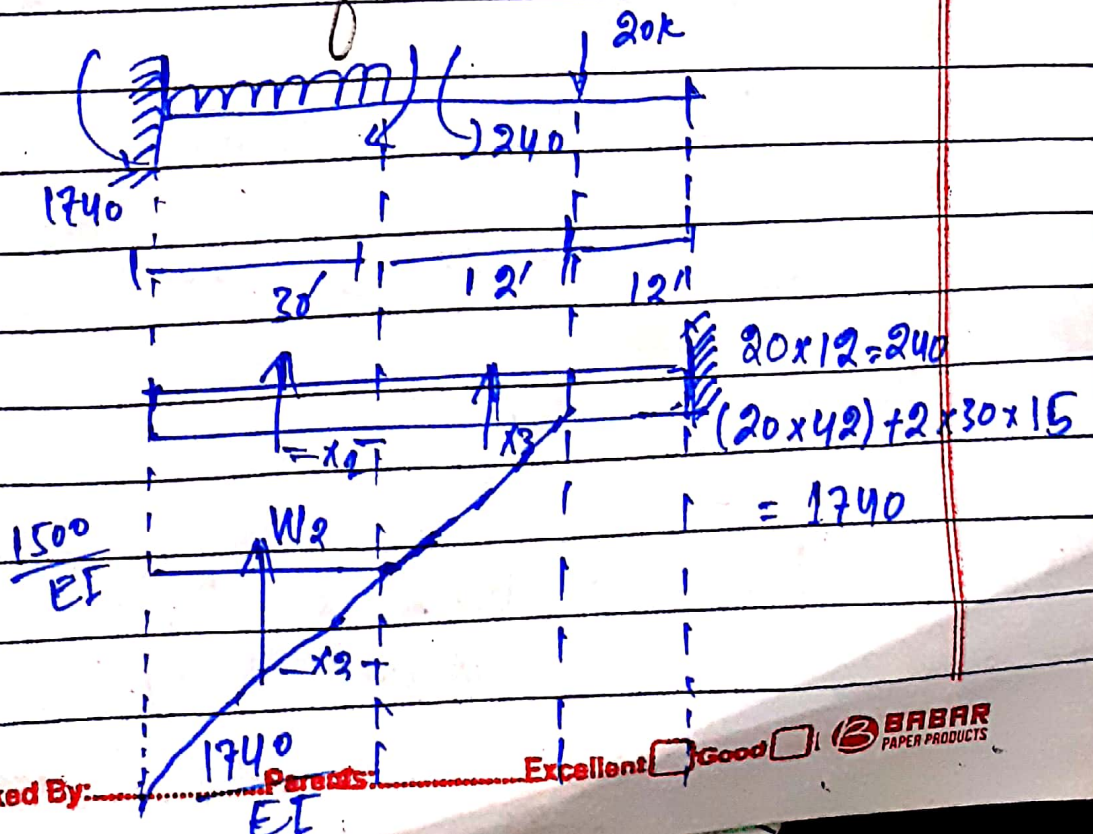 20k
240
1740
30'
12'
12'
20x12=240
(20x42)+2x30x15
= 1740
x1
x3
1500
EI
W2
x2
1740
EI
ked By:
Parents:
Excellent
Good
BABAR
PAPER PRODUCTS